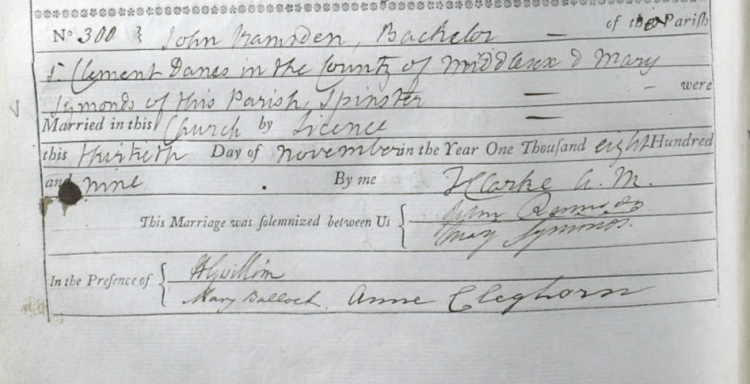 No 300 } John Ramsden, Bachelor — of the Parish
St Clement Danes in the County of Middlesex & Mary
Symonds of this Parish, Spinster — were
Married in this Church by Licence —
this thirtieth Day of November in the Year One Thousand eight Hundred
and nine . By me Clarke A. M.
This Marriage was solemnized between Us { John
Mary Symonds.
In the Presence of {
Mary Bullock Anne Cleghorn